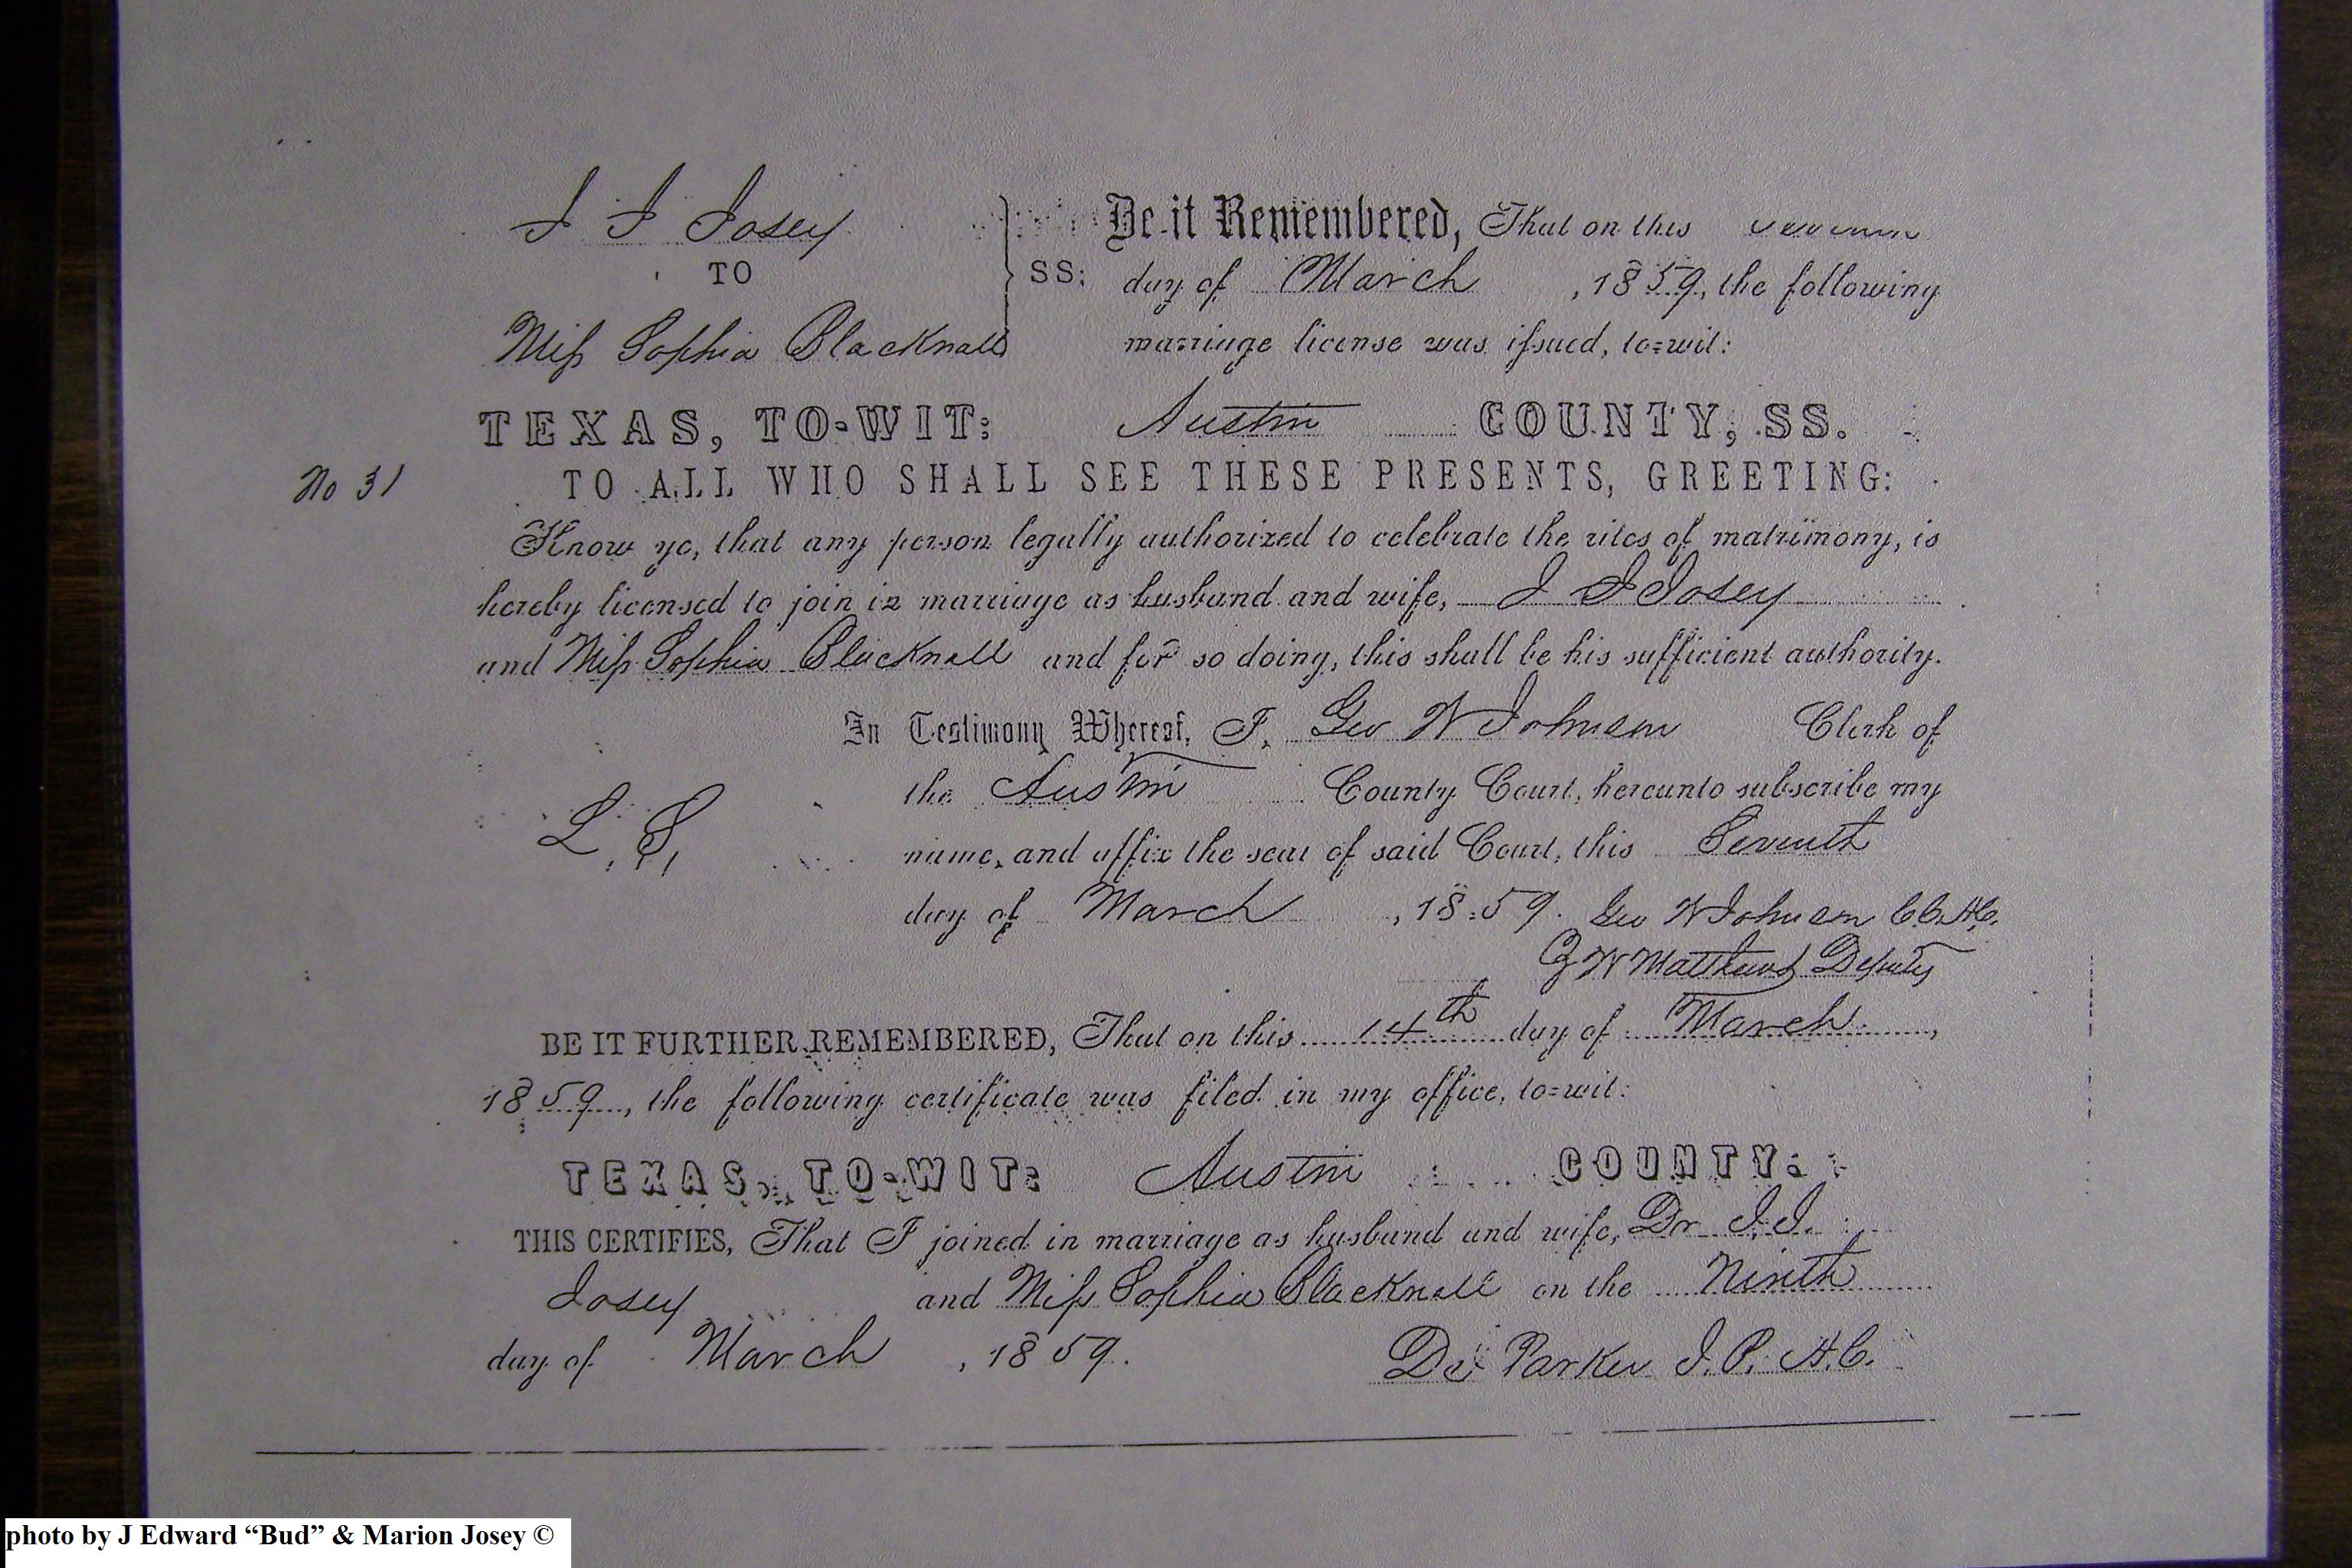 J J Josey
TO
Miss Sophia Blacknall
SS:
Be it Remembered, That on this
day of March, 1859, the following
marriage license was issued, to=wit:
TEXAS, TO-WIT: Austin COUNTY, SS.
No 31
TO ALL WHO SHALL SEE THESE PRESENTS, GREETING:
Know ye, that any person legally authorized to celebrate the rites of matrimony, is
hereby licensed to join in marriage as husband and wife, J J Josey
and Miss Sophia Blacknall and for so doing, this shall be his sufficient authority.
In Testimony Whereof, I, Geo W Johnson Clerk of
the Austin County Court, hereunto subscribe my
L. S.
name, and affix the seal of said Court, this Seventh
day of March, 1859. Geo W Johnson C.C.A.C.
W Matthews Deputy
BE IT FURTHER REMEMBERED, That on this 14th day of March,
1859, the following certificate was filed in my office, to=wit:
TEXAS, TO-WIT: Austin COUNTY.
THIS CERTIFIES, That I joined in marriage as husband and wife, Dr J.J.
Josey and Miss Sophia Blacknall on the Ninth
day of March, 1859. Parker J.P. A.C.
photo by J Edward “Bud” & Marion Josey ©